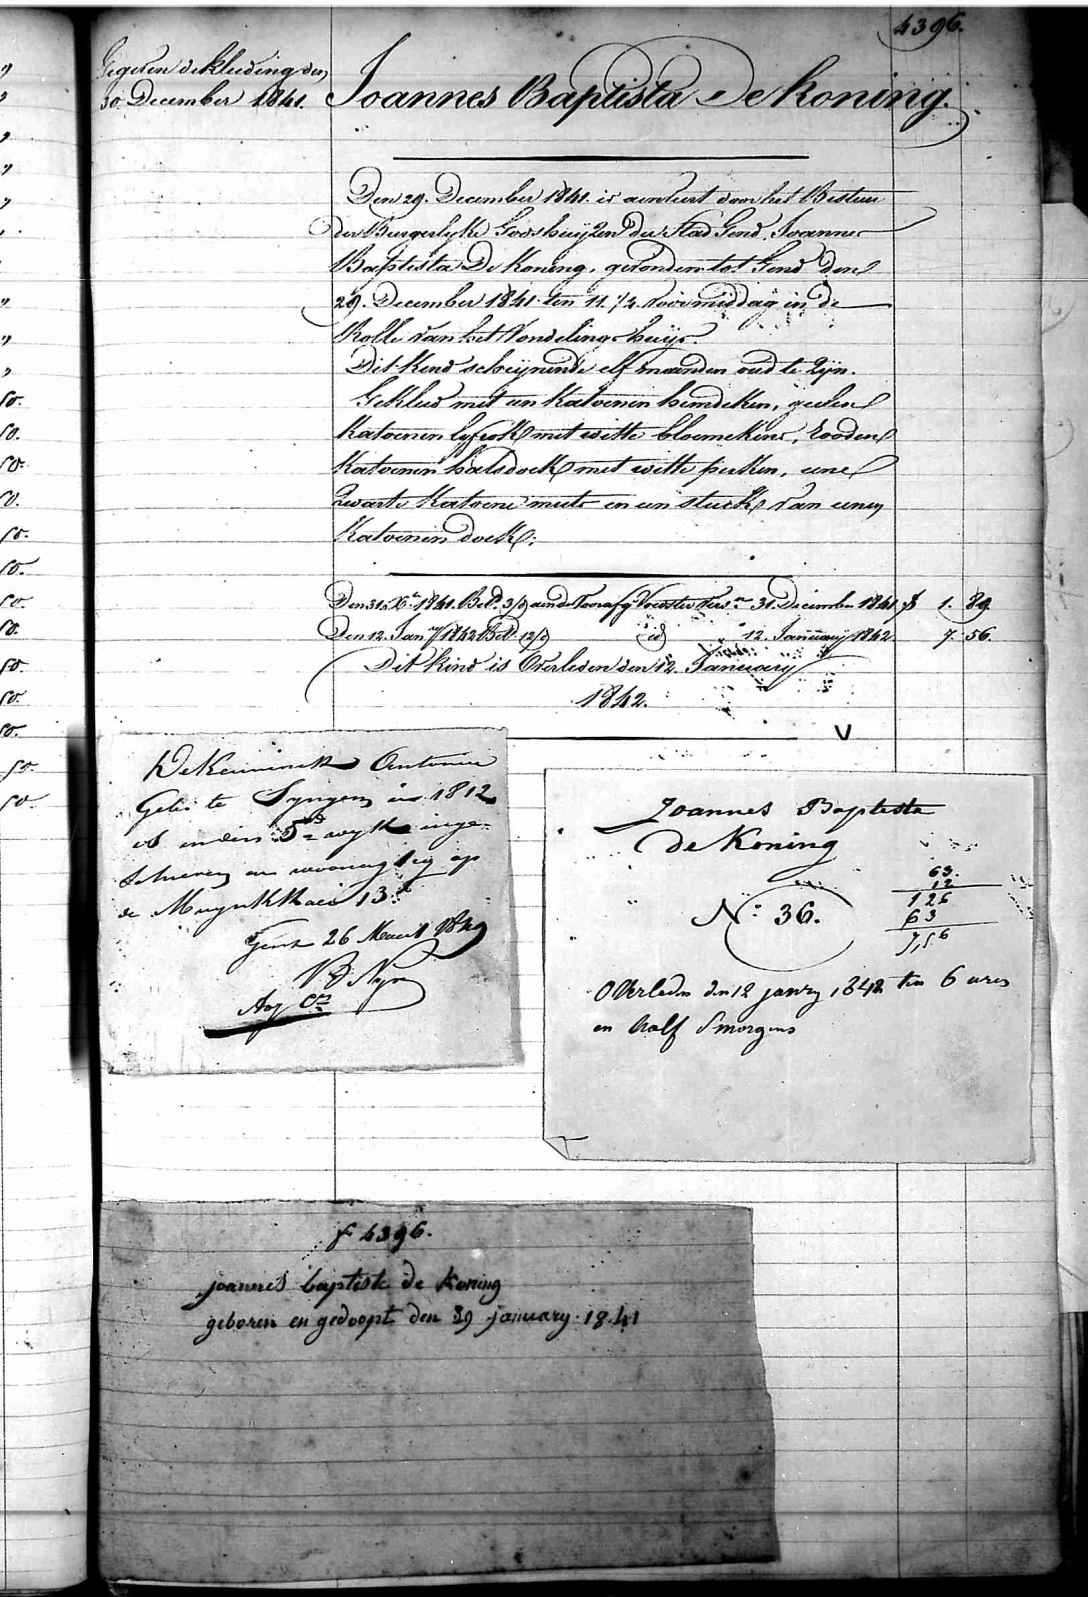 4396.
Gegeven de kleeding den
30 December 1841.
Joannes Baptista De Koning.
Den 29. December 1841. is aenveert door het Bestuer
der Burgerlyke Godshuijzen der Stad Gend, Joannes
Baptista De Koning, gevonden tot Gend den
29. December 1841 ten 11. 1/4 voormiddag in de
Rolle van het Vondelinghuijs.
Dit Kind scheijnende elf maenden oud te Zijn.
Gekleed met een Katoenen hemdeken, geelen
Katoenen lyfrok met witte bloemekens, Rooden
Katoenen halsdoek met witte perken, eene
Zwarte Katoene muts en een stuck van eenen
Katoenen doek:
Den 31. Xb. 1841. Bet. 3/d aen de Voorafg. Voedster Vers. 31. December 1841. f 1. 89.
Den 12. Jany 1842 Bet. 12/d id 12. January 1842 7. 56.
Dit kind is Overleden den 12. January
1842.
V
De Keuninck Antonia
Geb. te Syngem in 1812
is in den 5de wyk inge-
schreven en woonachtig op
de Muynkkaei 13.
Gent 26 Maert 1849
Joannes Baptista
de Koning
N: 36.
63.
12
126
63
7,56
Overleden den 12 janry 1842 ten 6 uren
en half smorgens
f 4396.
joannes baptist de Koning
geboren en gedoopt den 29 january 1841